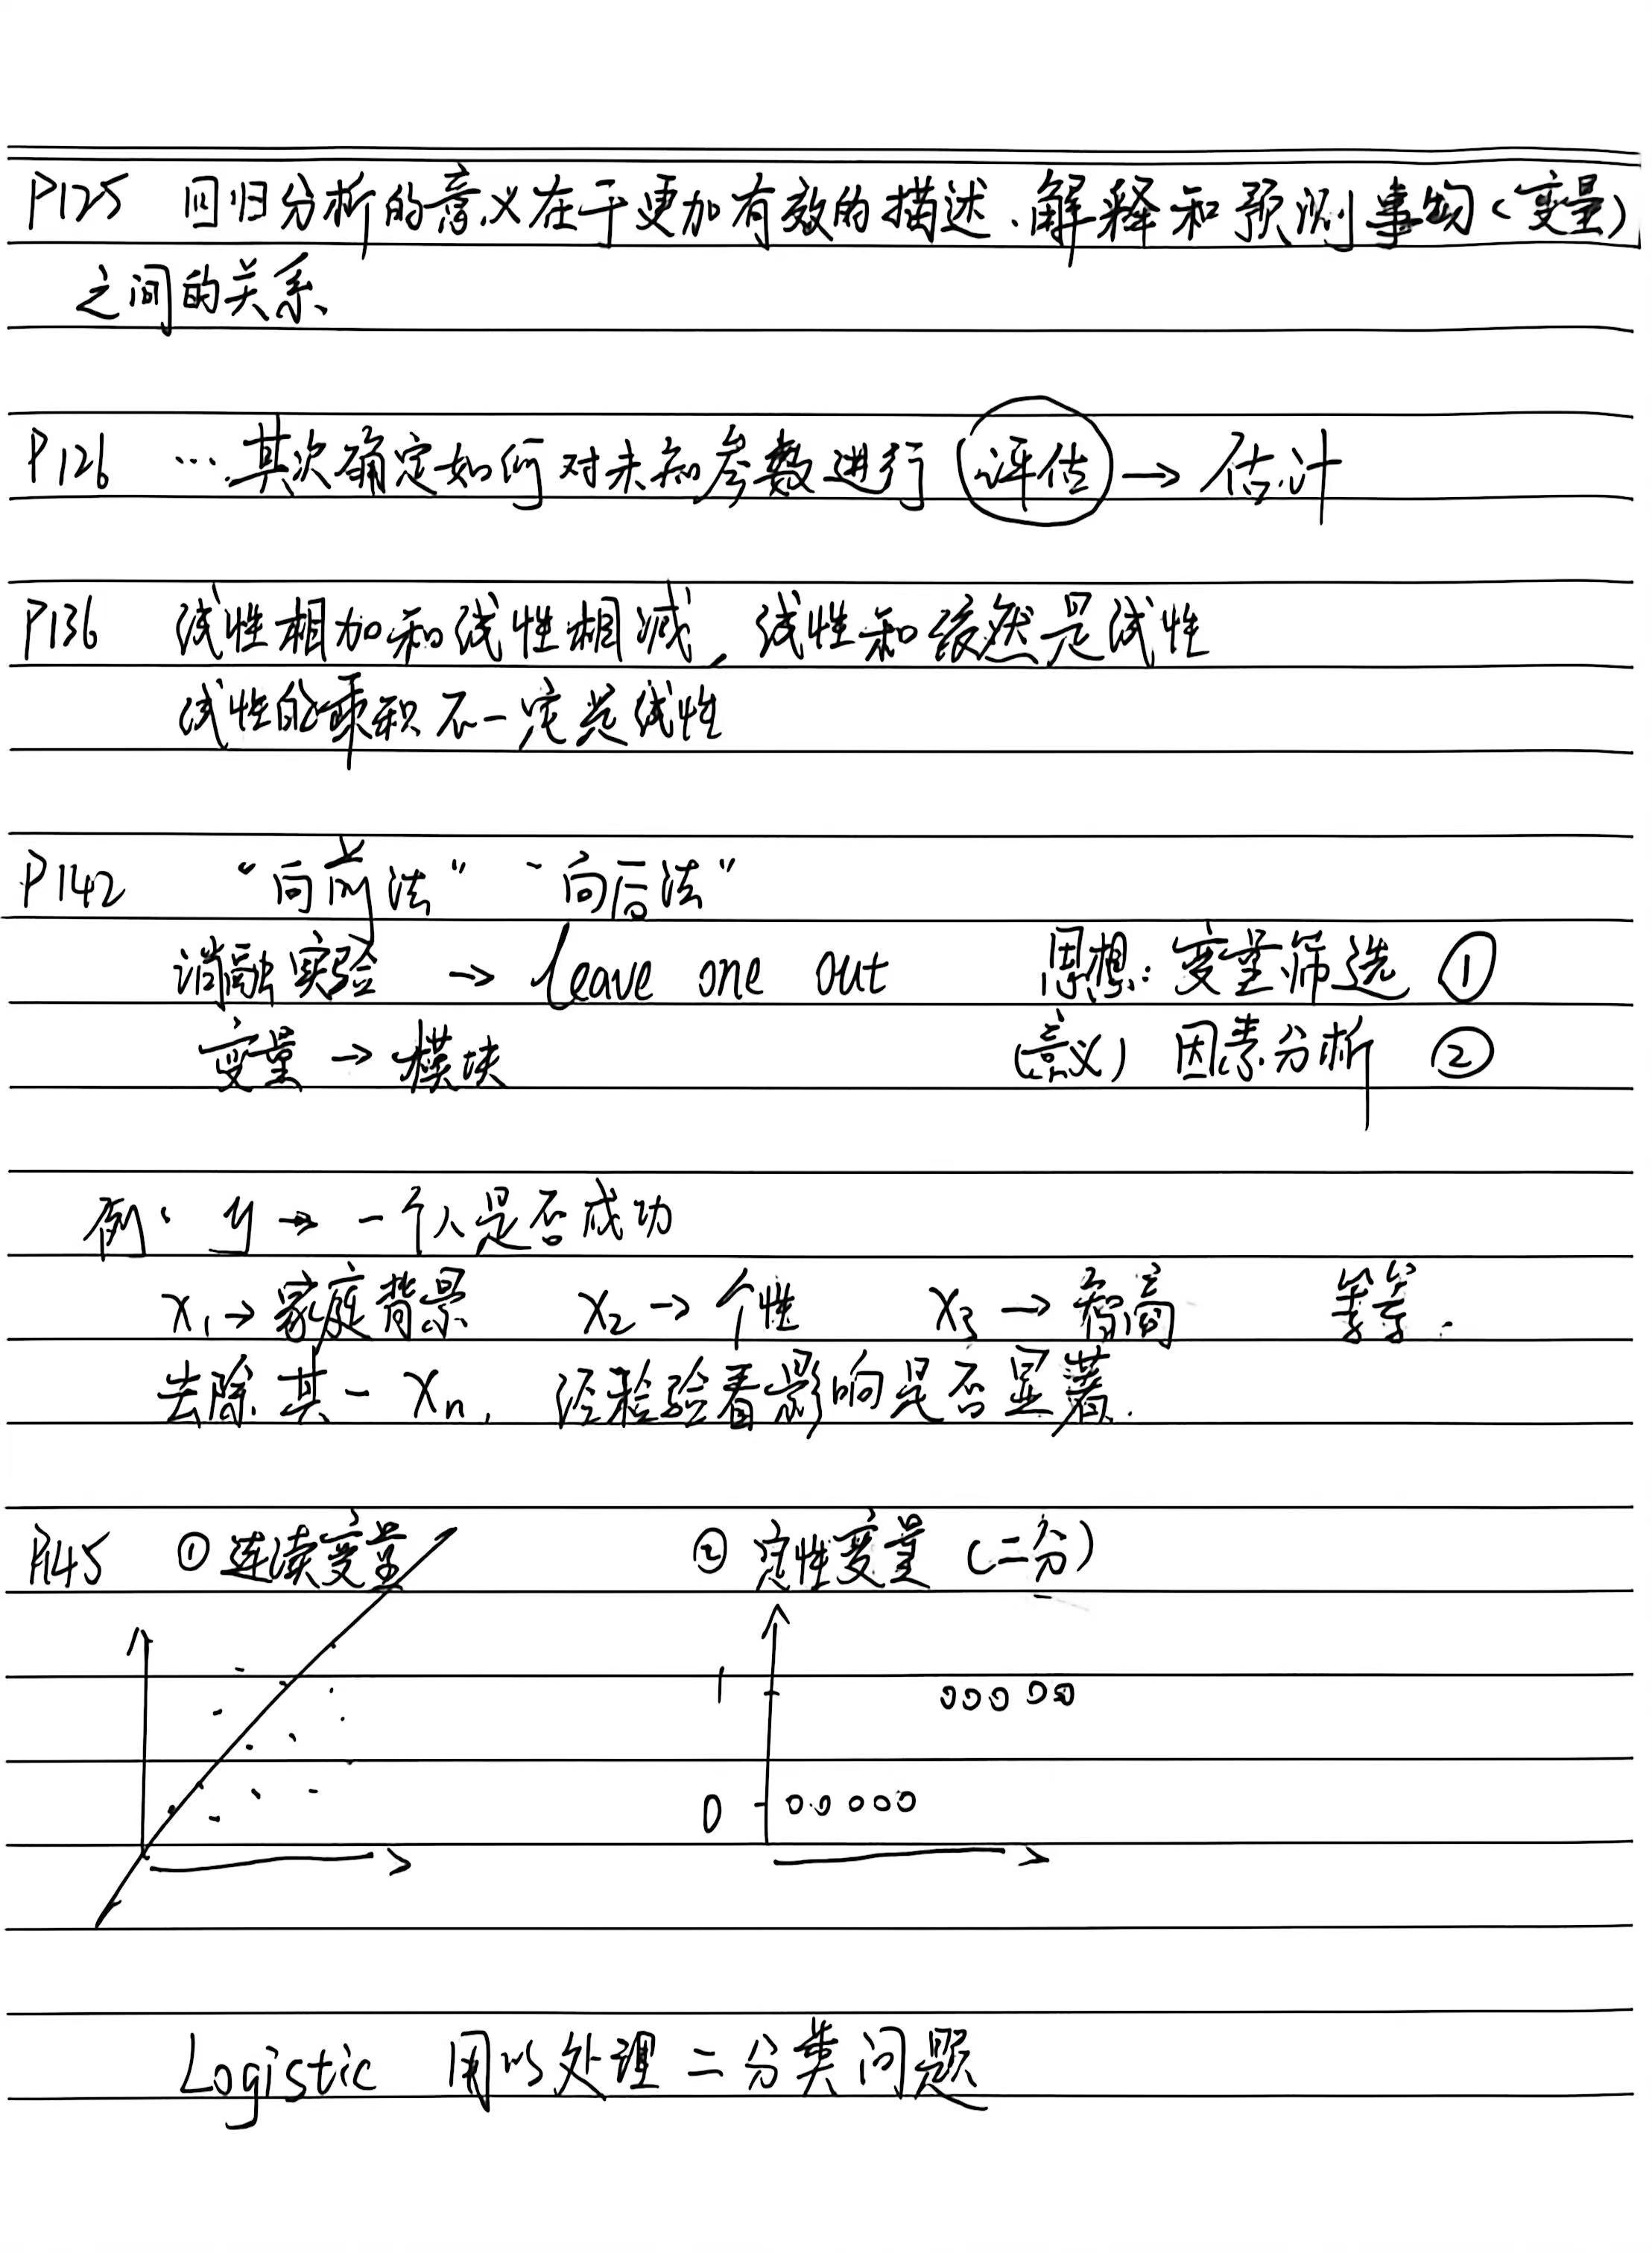 P125 回归分析的意义在于更加有效的描述、解释和预测事物(变量)
之间的关系、
P126 …其次确定如何对未知参数进行 评估 → 估计
P136 线性相加和线性相减，线性和依然是线性
线性的乘积不一定是线性
P142 “向前法” “向后法”
消融实验 → leave one out 思想：变量筛选 ①
变量 → 模块 (意义) 因素分析 ②
例：y → 一个人是否成功
x₁ → 家庭背景 x₂ → 个性 x₃ → 智商 等等.
去除其一 xₙ, 经检验看影响是否显著.
P145 ① 连续变量 ② 定性变量 (二分)
1
0
Logistic 用以处理二分类问题